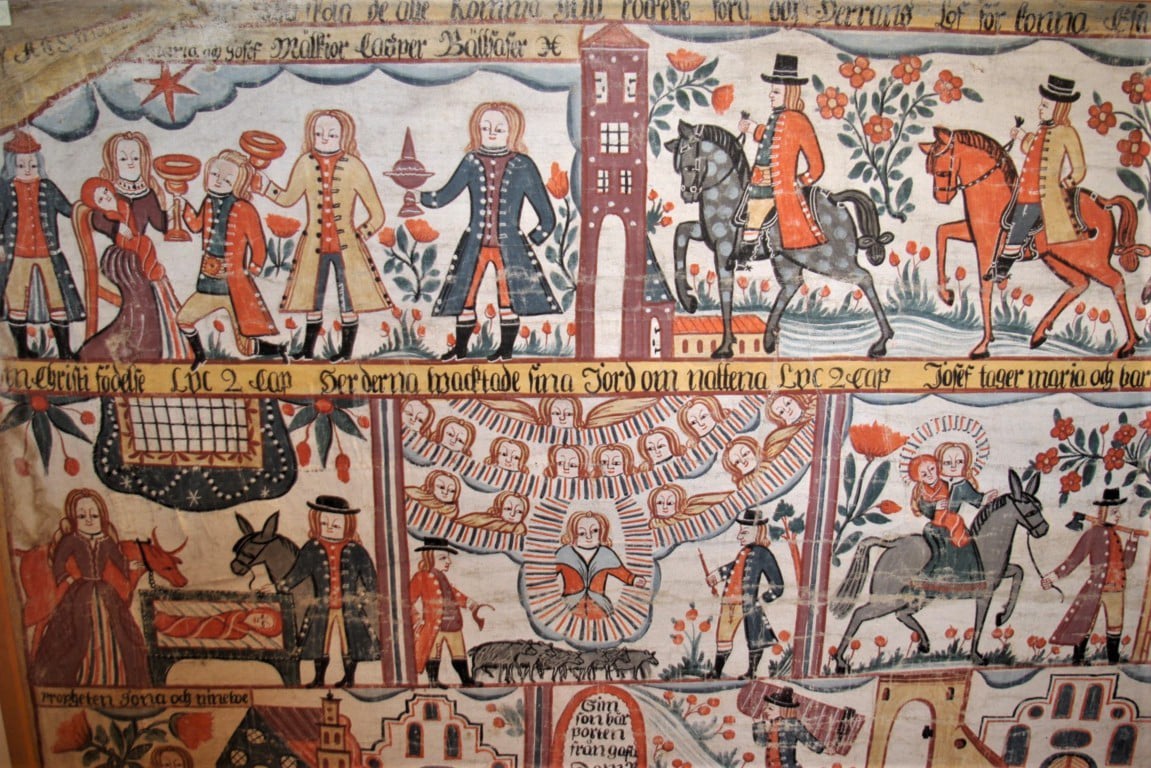 de alle Komma och Herrans Lof för
maria och Josef Mälkior Casper Bältsaser
Christi födelse LVC 2 Cap
Herderna wacktade sina Jord om nattena LVC 2 Cap
Josef tager maria och bar
Propheten Jona och ninewe
Sim
son bär
porten
från gasa